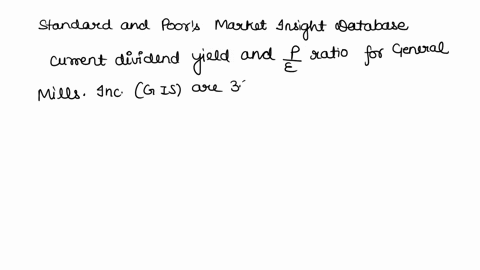 Standard and Poor's Market Insight Database
Current dividend yield and P/E ratio for General
Mills. Inc. (GIS) are 3.